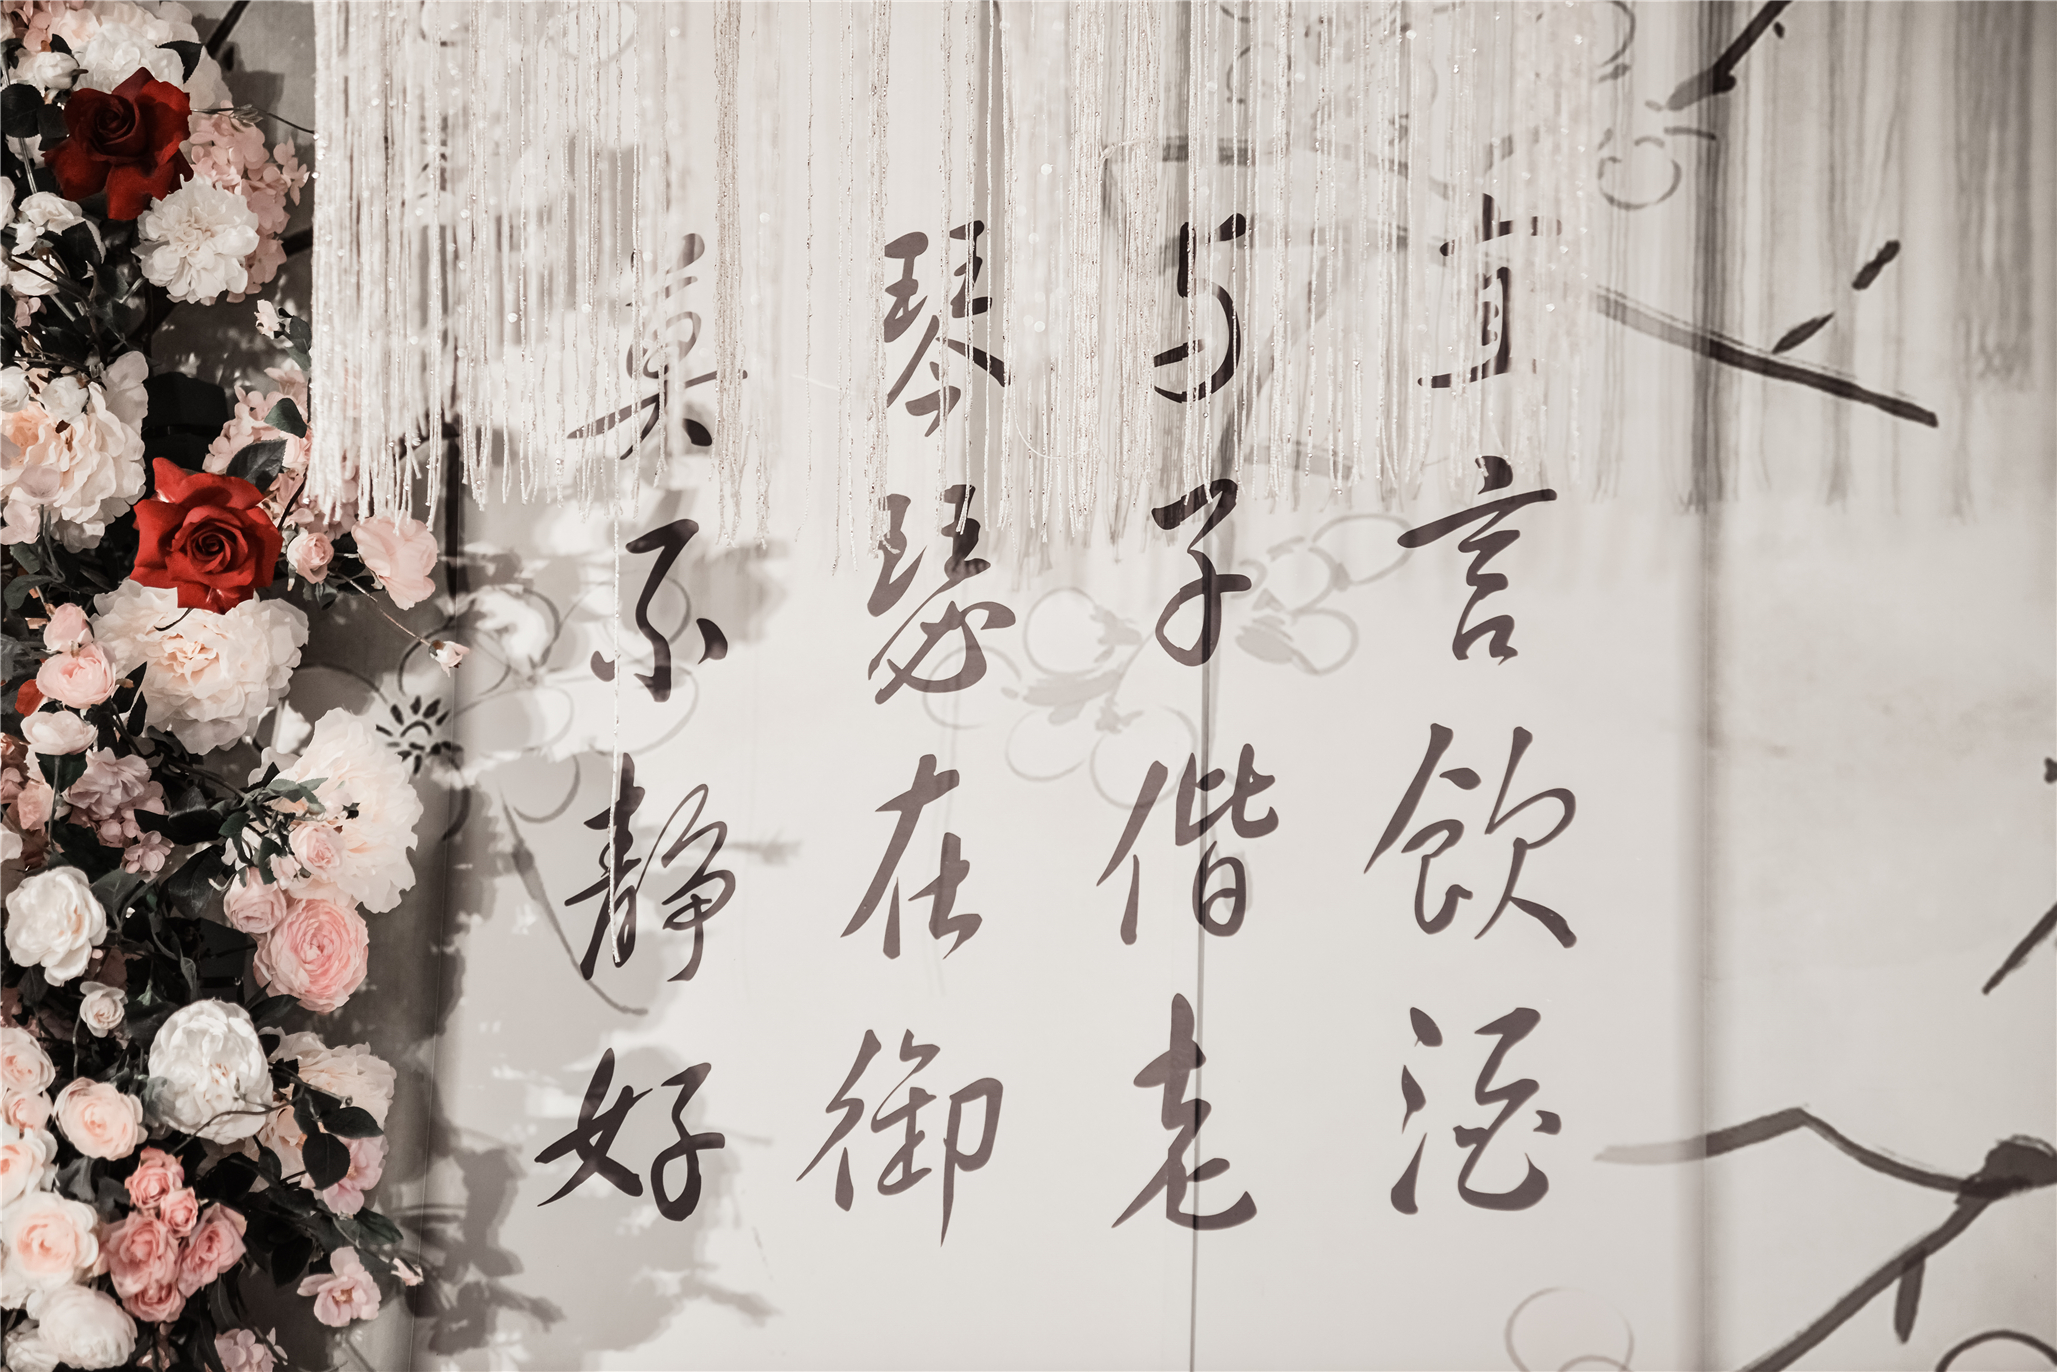 宜言飲酒
与子偕老
琴瑟在御
莫不静好